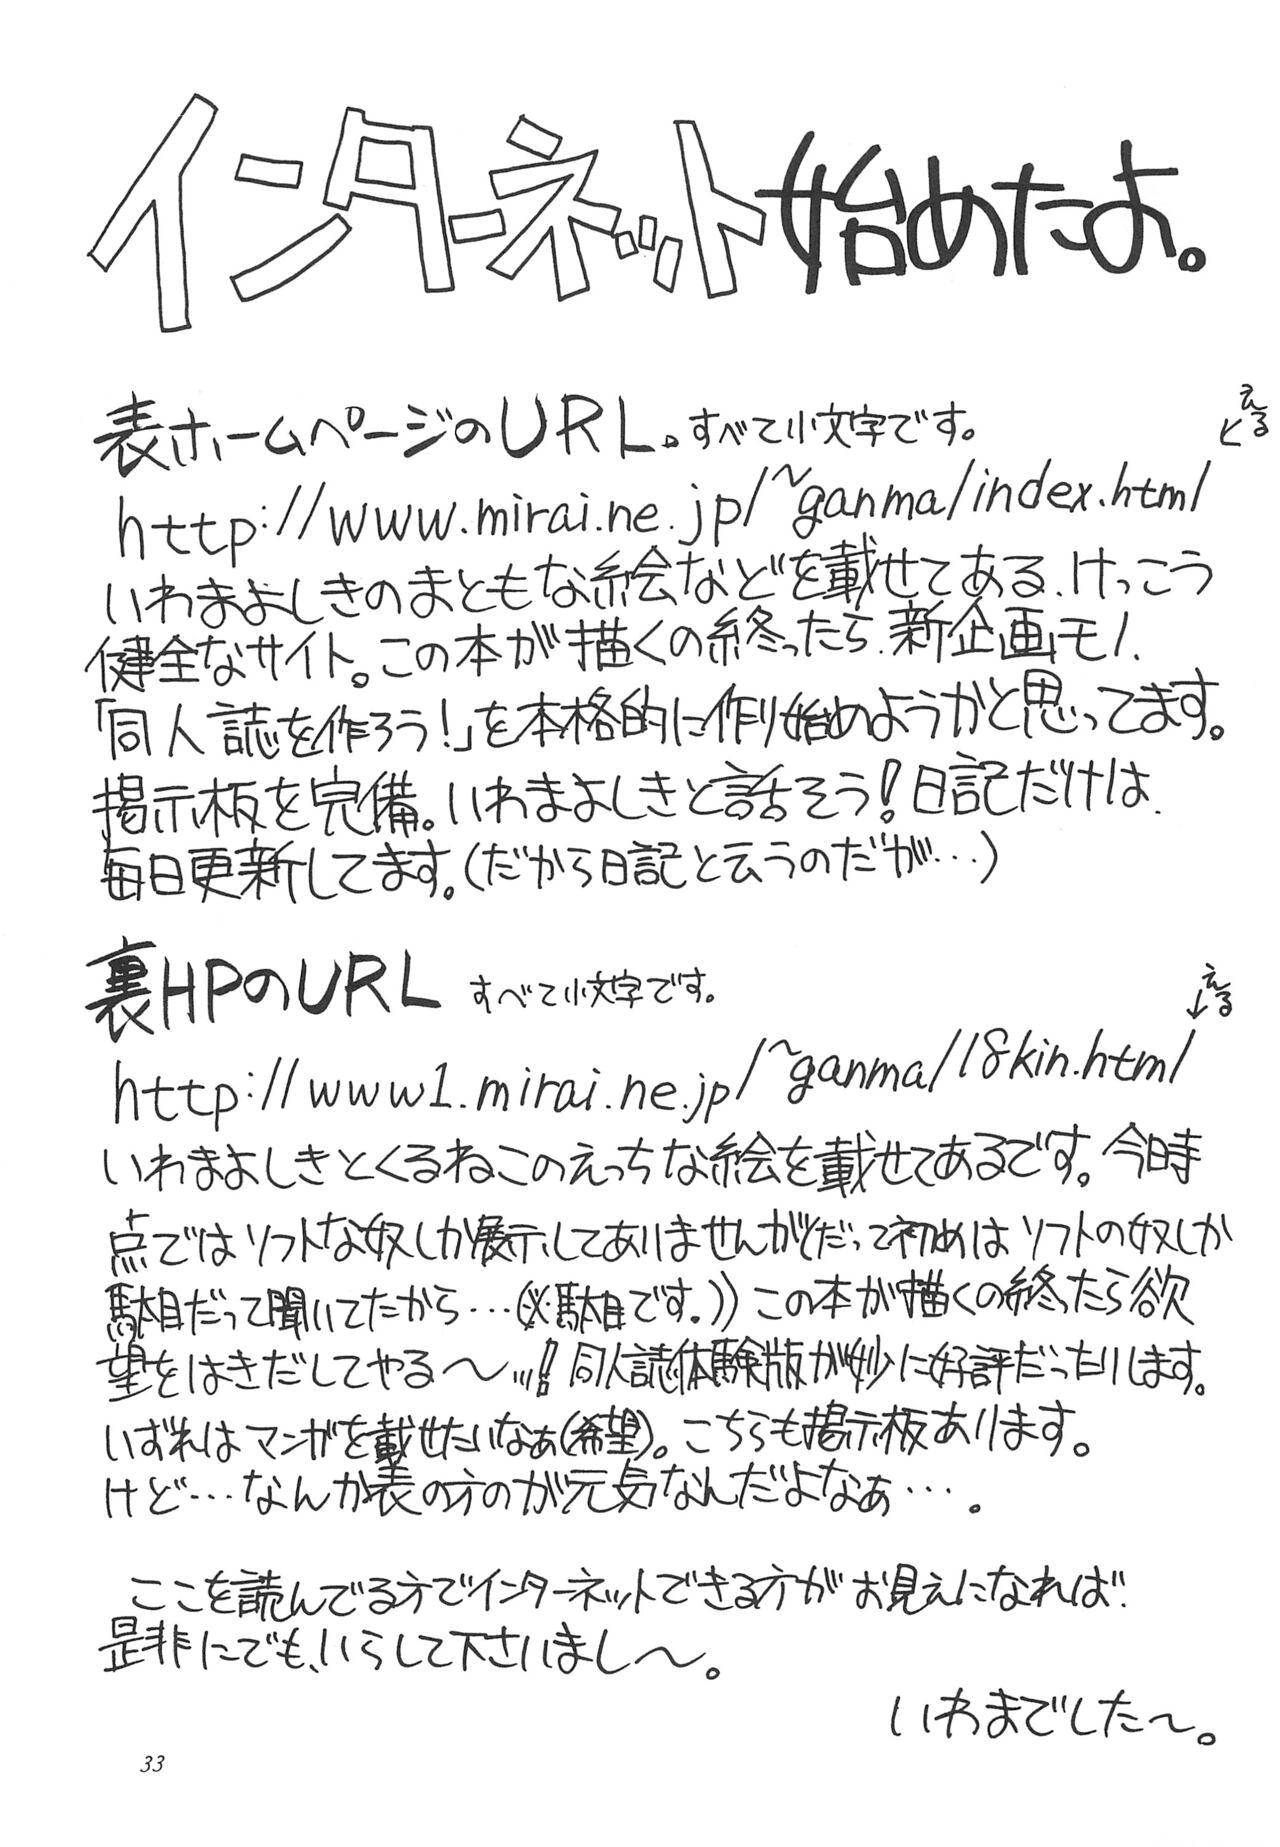 インターネット始めたよ。
表ホームページのURL。すべて小文字です。
える
http://www.mirai.ne.jp/~ganma/index.html
いわまよしきのまともな絵などを載せてある、けっこう
健全なサイト。この本が描くの終ったら、新企画モノ、
「同人誌を作ろう!」を本格的に作り始めようかと思ってます。
掲示板を完備。いわまよしきと話そう!日記だけは、
毎日更新してます。(だから日記と云うのだが…)
裏HPのURL すべて小文字です。
える
http://www1.mirai.ne.jp/~ganma/18kin.html
いわまよしきとくるねこのえっちな絵を載せてあるです。今日時
点ではソフトな奴しか展示してありませんが(だって初めはソフトの奴しか
駄目だって聞いてたから…(※駄目です。))この本が描くの終ったら欲
望をはきだしてやる〜ッ!同人誌体験版が妙に好評だったりします。
いずれはマンガを載せたいなぁ(希望)。こちらも掲示板あります。
けど…なんか表の方のが元気なんだよなぁ…。
ここを読んでる方でインターネットできる方がお見えになれば、
是非にでも、いらして下さいまし〜。
いわまでした〜。
33